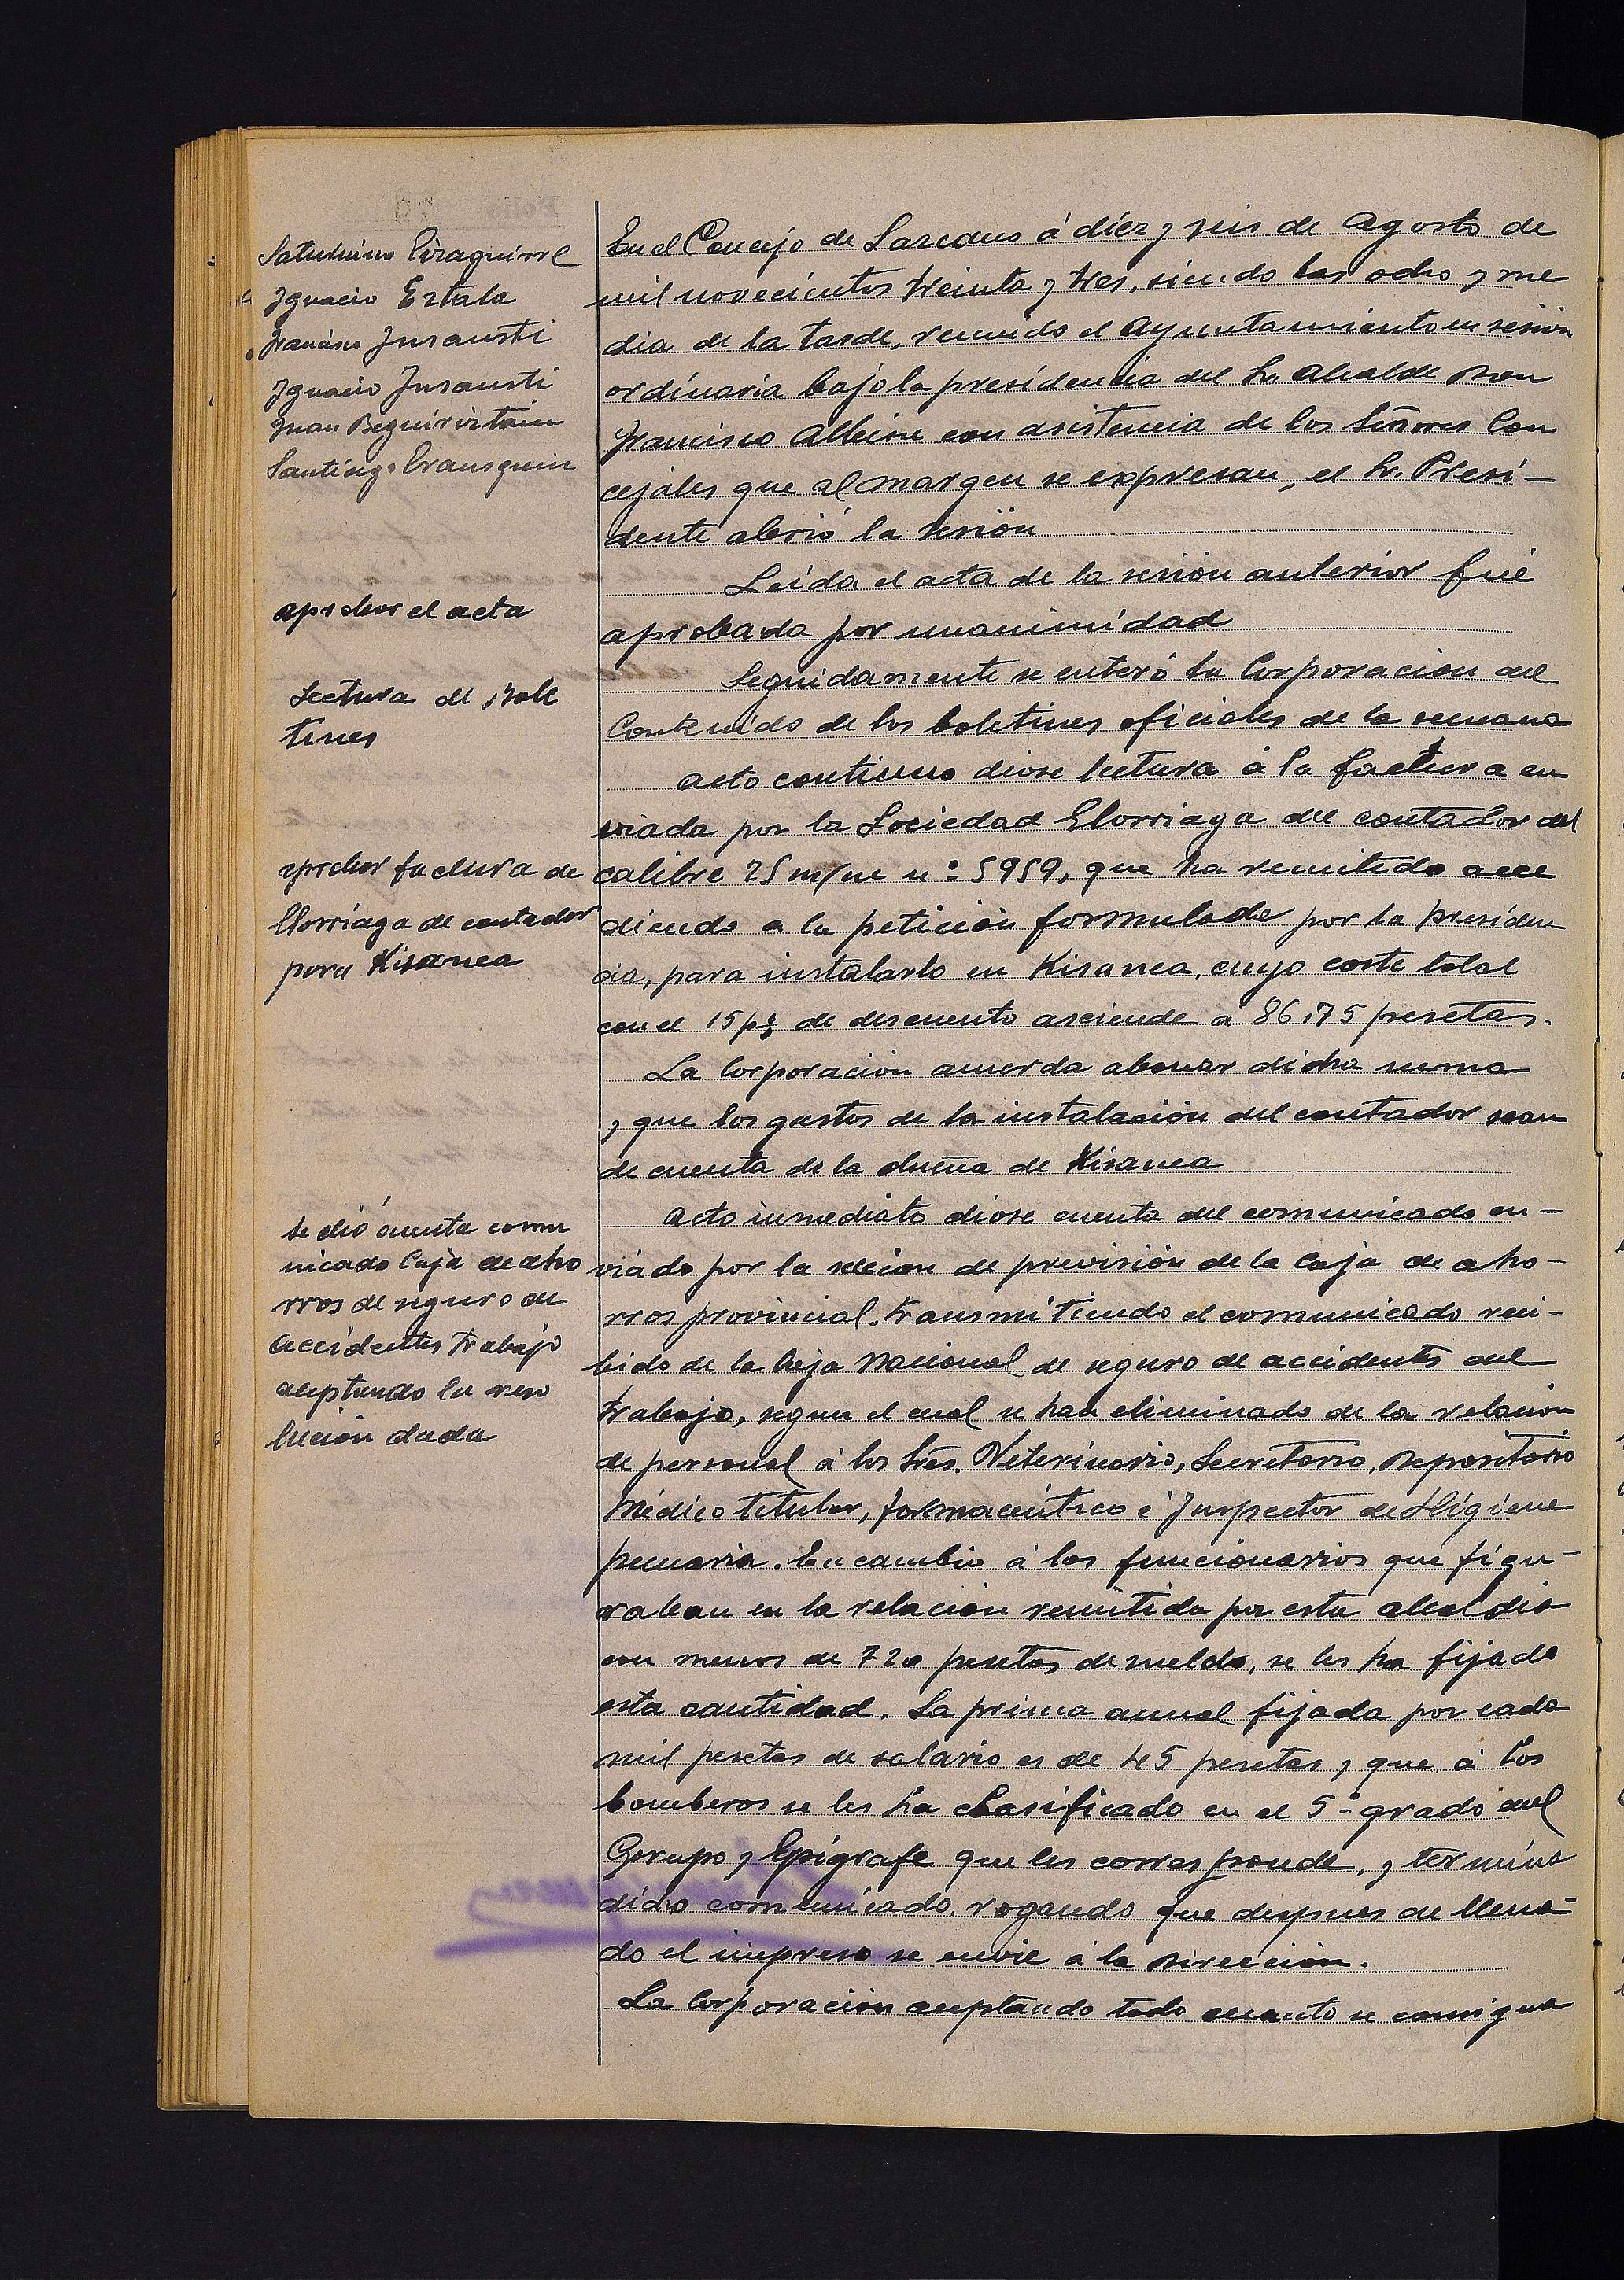 Saturnino Eizaguirre
Ignacio Eztala
Francisco Insausti
Ignacio Insausti
Juan Beguiristain
Santiago Erausquin
aprobar el acta
Lectura de Bole
tines
aprobar factura de
Elorriaga de contador
para Kisanea
Se dió cuenta comu
nicado Caja de aho
rros de seguro de
accidentes trabajo
aceptando la reso
lución dada
En el Concejo de Lazcano á diéz y seis de Agosto de
mil novecientos treinta y tres, siendo las ocho y me
dia de la tarde, reunido el Ayuntamiento en sesion
ordinaria bajo la presidencia del Sr. Alcalde Don
Francisco Albisu con asistencia de los Señores Con
cejales que al margen se expresan, el Sr. Presi-
dente abrió la sesión
Leida el acta de la sesión anterior fué
aprobada por unanimidad
Seguidamente se enteró la Corporación del
Contenido de los boletines oficiales de la semana
Acto continuo diose lectura á la factura en
viada por la Sociedad Elorriaga del contador del
calibre 25 m/m nº 5959, que ha remitido acce
diendo a la petición formulada por la presiden
cia, para instalarlo en Kisanea, cuyo coste total
con el 15 p% de descuento asciende á 86,75 pesetas.
La Corporación acuerda abonar dicha suma
y que los gastos de la instalación del contador sean
de cuenta de la dueña de Kisanea
Acto inmediato diose cuenta del comunicado en-
viado por la sección de previsión de la Caja de aho-
rros provincial, transmitiendo el comunicado reci-
bido de la Caja Nacional de seguro de accidentes del
trabajo, segun el cual se han eliminado de la relación
de personal á los Srs. Veterinario, Secretario, Depositario
Médico titular, farmacéutico é Inspector de Higiene
pecuaria. En cambio á los funcionarios que figu-
raban en la relación remitida por esta alcaldia
con menos de 720 pesetas de sueldo, se les ha fijado
esta cantidad. La prima anual fijada por cada
mil pesetas de salario es de 45 pesetas y que á los
bomberos se les ha clasificado en el 5º grado del
Grupo y Epígrafe que les corresponde, y términa
dicho comunicado, rogando que despues de llena-
do el impreso se envie á la Dirección.
La Corporación aceptando todo cuanto se consigna